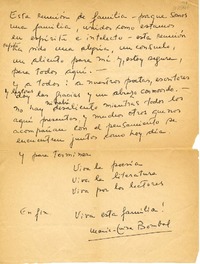 Esta reunión de familia - porque somos
una familia, unidos como estamos
en espíritu e intelecto - esta reunión
ha sido una alegría, un consuelo,
un aliento para mí y, estoy segura,
para todos aquí.
Y a todos: a nuestros poetas, escritores
doy las gracias y un abrazo cornado. -
no hay desaliento mientras todos los
aquí presentes, y muchos otros que nos
acompañan con el pensamiento se
encuentren juntos como hoy día
Y para terminar
Viva la poesía
Viva la literatura
Viva por los lectores
En fin, Viva esta familia!
María-Luisa Bombal